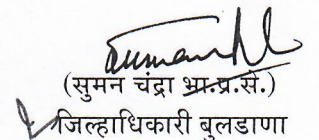 (सुमन चंद्रा भा.प्र.से.)
जिल्हाधिकारी बुलडाणा